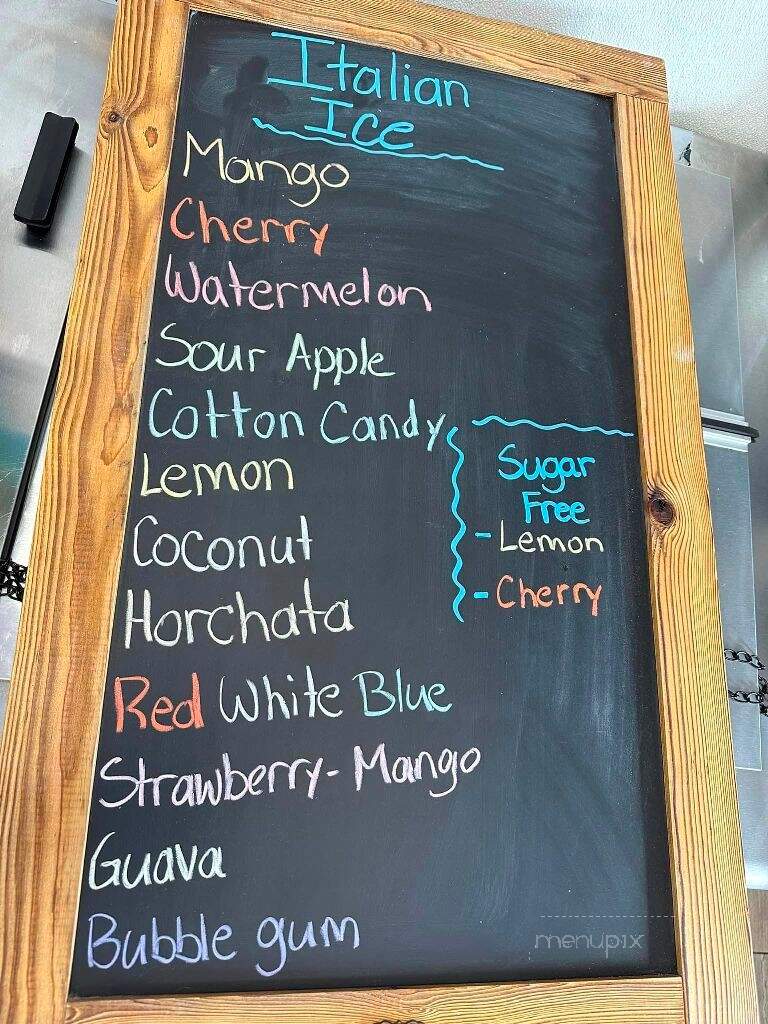 Italian
Ice
Mango
Cherry
Watermelon
Sour Apple
Cotton Candy
Lemon
Coconut
Horchata
Red White Blue
Strawberry-Mango
Guava
Bubble gum
Sugar
Free
- Lemon
- Cherry
menupix